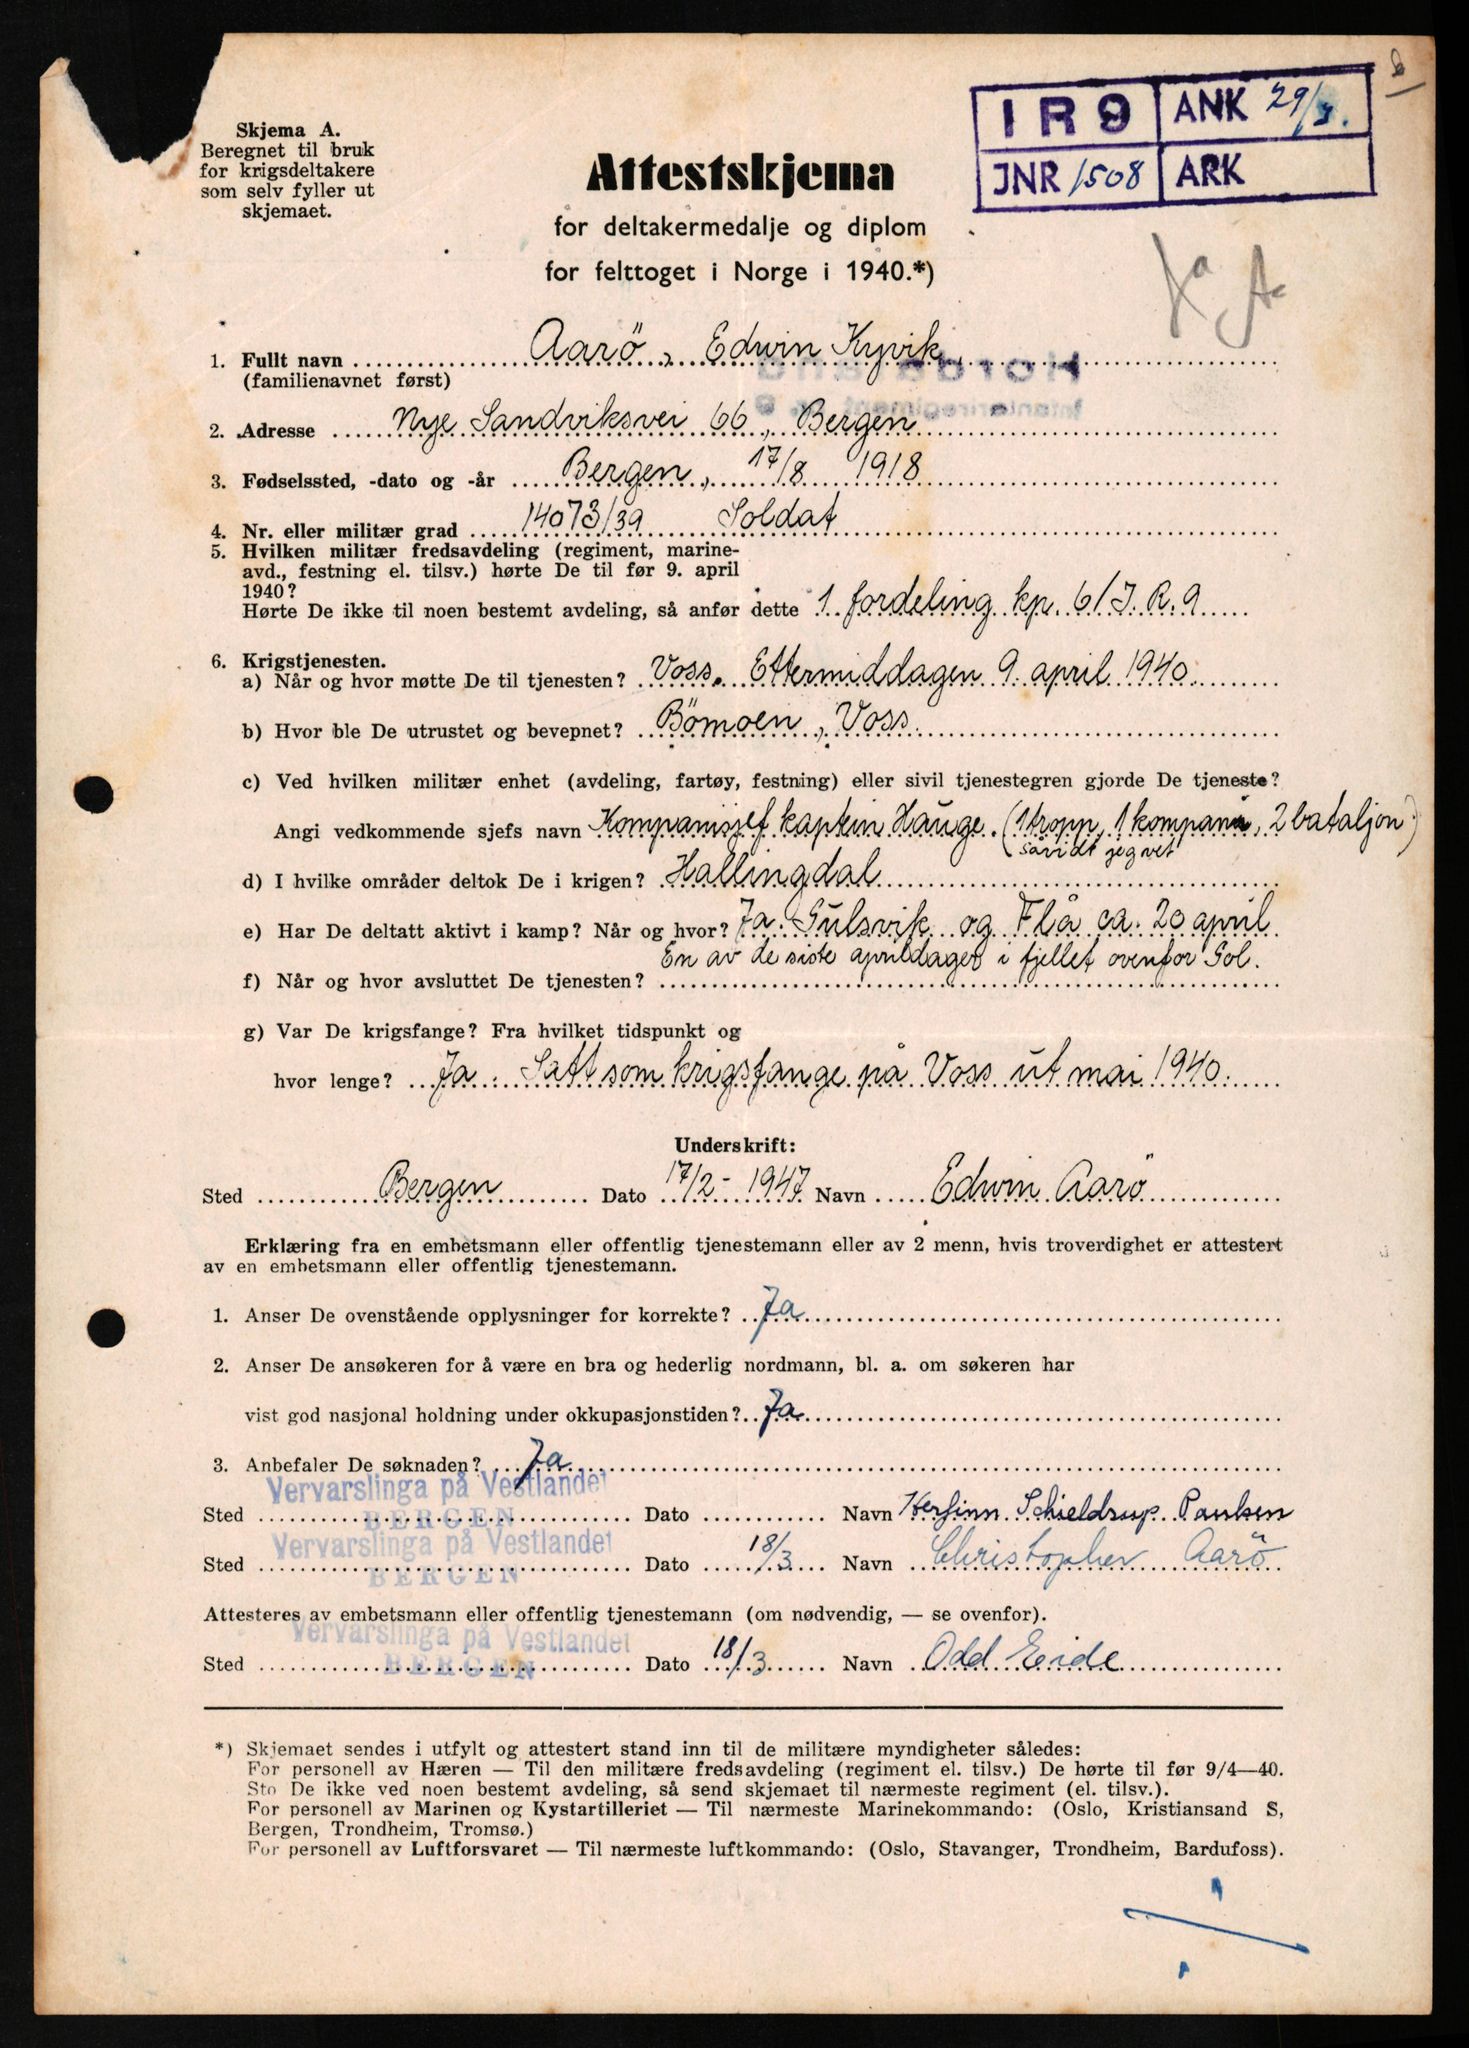 Skjema A.
Beregnet til bruk
for krigsdeltakere
som selv fyller ut
skjemaet.
IR9 ANK 29/3.
JNR 1508 ARK
Attestskjema
for deltakermedalje og diplom
for felttoget i Norge i 1940.*)
Ja A
1. Fullt navn Aarö, Edwin Kyvik
(familienavnet først)
Hordaland
Infanteriregiment nr. 9
2. Adresse Nye Sandviksvei 66, Bergen
3. Fødselssted, -dato og -år Bergen, 17/8 1918
4. Nr. eller militær grad 14073/39 Soldat
5. Hvilken militær fredsavdeling (regiment, marine-
avd., festning el. tilsv.) hørte De til før 9. april
1940?
Hørte De ikke til noen bestemt avdeling, så anfør dette 1 fordeling kp. 6/J.R.9
6. Krigstjenesten.
a) Når og hvor møtte De til tjenesten? Voss. Ettermiddagen 9. april 1940.
b) Hvor ble De utrustet og bevepnet? Bömoen, Voss.
c) Ved hvilken militær enhet (avdeling, fartøy, festning) eller sivil tjenestegren gjorde De tjeneste?
Angi vedkommende sjefs navn Kompanisjef kaptein Hauge. (1 tropp, 1 kompani, 2 bataljon)
såvidt jeg vet
d) I hvilke områder deltok De i krigen? Hallingdal
e) Har De deltatt aktivt i kamp? Når og hvor? Ja. Gulsvik og Flå ca. 20 april
En av de siste aprildager i fjellet ovenfor Gol.
f) Når og hvor avsluttet De tjenesten?
g) Var De krigsfange? Fra hvilket tidspunkt og
hvor lenge? Ja. Satt som krigsfange på Voss ut mai 1940.
Underskrift:
Sted Bergen Dato 17/2 - 1947 Navn Edwin Aarö
Erklæring fra en embetsmann eller offentlig tjenestemann eller av 2 menn, hvis troverdighet er attestert
av en embetsmann eller offentlig tjenestemann.
1. Anser De ovenstående opplysninger for korrekte? Ja
2. Anser De ansøkeren for å være en bra og hederlig nordmann, bl. a. om søkeren har
vist god nasjonal holdning under okkupasjonstiden? Ja
3. Anbefaler De søknaden? Ja
Vervarslinga på Vestlandet
Sted BERGEN Dato Navn Herfinn Schieldrup Paulsen
Vervarslinga på Vestlandet
Sted BERGEN Dato 18/3 Navn Christopher Aarö
Attesteres av embetsmann eller offentlig tjenestemann (om nødvendig, — se ovenfor).
Vervarslinga på Vestlandet
Sted BERGEN Dato 18/3 Navn Odd Eide
*) Skjemaet sendes i utfylt og attestert stand inn til de militære myndigheter således:
For personell av Hæren — Til den militære fredsavdeling (regiment el. tilsv.) De hørte til før 9/4—40.
Sto De ikke ved noen bestemt avdeling, så send skjemaet til nærmeste regiment (el. tilsv.).
For personell av Marinen og Kystartilleriet — Til nærmeste Marinekommando: (Oslo, Kristiansand S,
Bergen, Trondheim, Tromsø.)
For personell av Luftforsvaret — Til nærmeste luftkommando: (Oslo, Stavanger, Trondheim, Bardufoss).